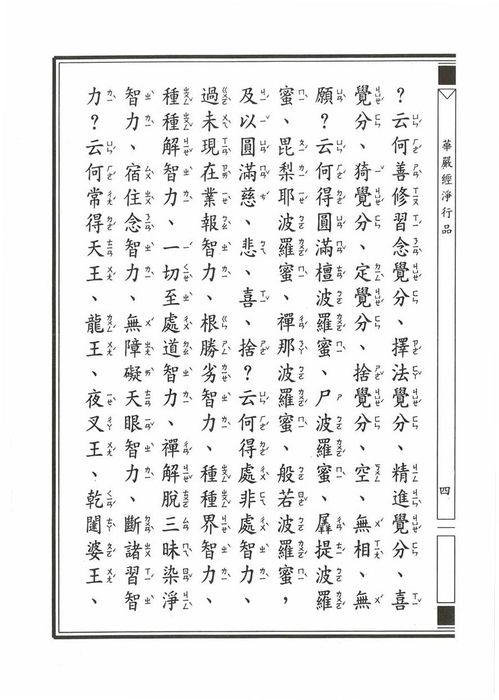 華嚴經淨行品
四
？云何善修習念覺分、擇法覺分、精進覺分、喜
覺分、猗覺分、定覺分、捨覺分、空、無相、無
願？云何得圓滿檀波羅蜜、尸波羅蜜、羼提波羅
蜜、毘梨耶波羅蜜、禪那波羅蜜、般若波羅蜜，
及以圓滿慈、悲、喜、捨？云何得處非處智力、
過未現在業報智力、根勝劣智力、種種界智力、
種種解智力、一切至處道智力、禪解脫三昧染淨
智力、宿住念智力、無障礙天眼智力、斷諸習智
力？云何常得天王、龍王、夜叉王、乾闥婆王、